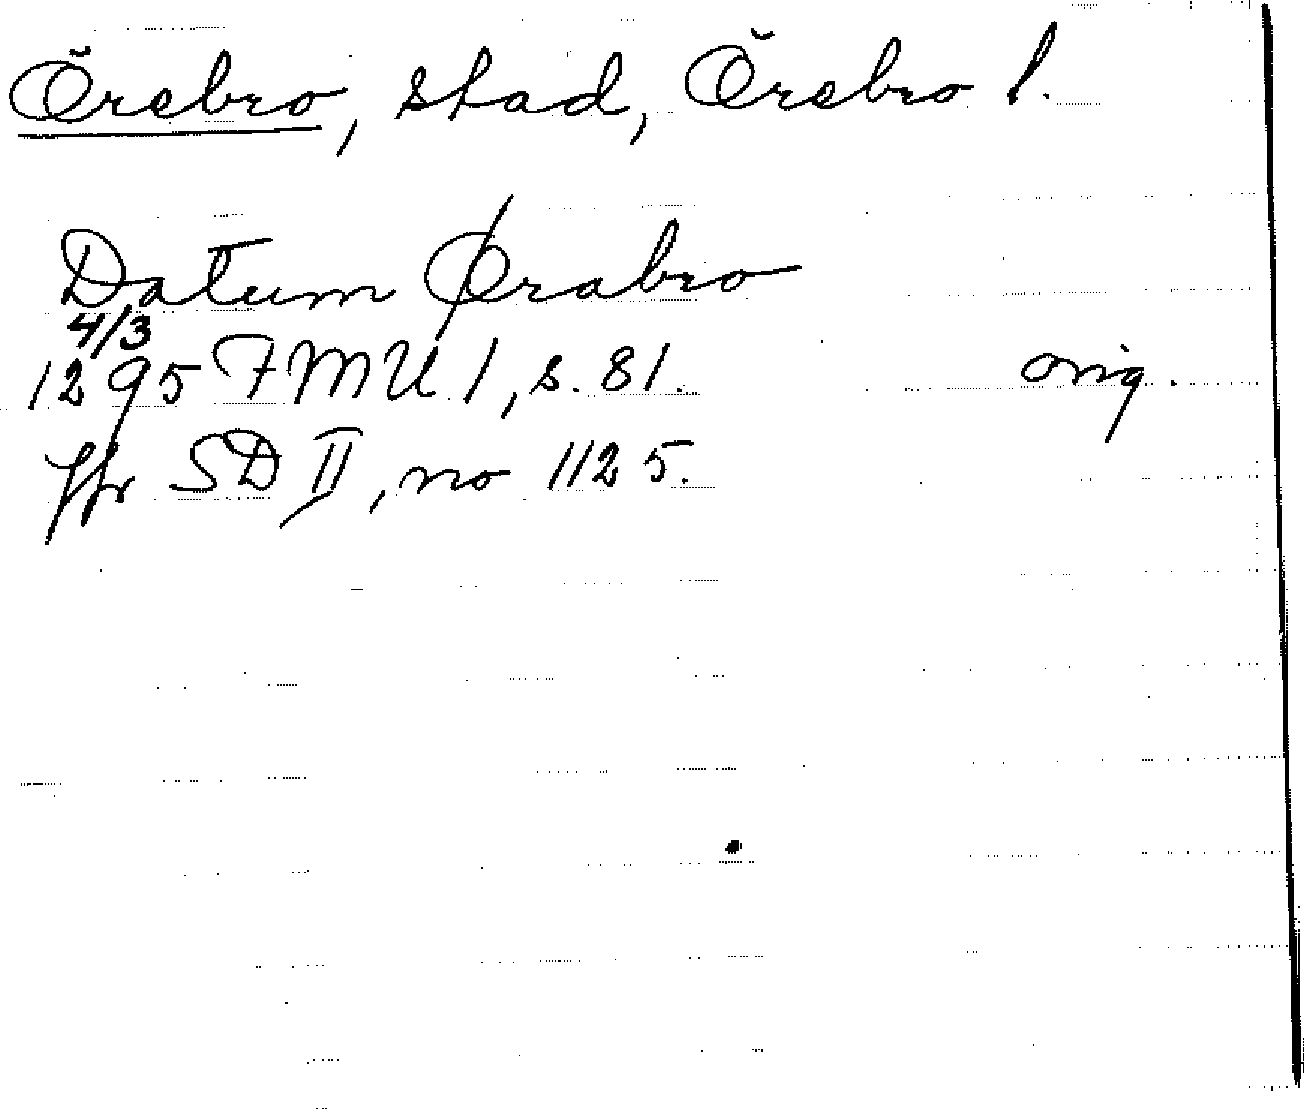 Örebro, stad, Örebro l.
Datum Ørabro
4/3
1295 FMU 1, s. 81. orig.
Jfr SD II, no 1125.